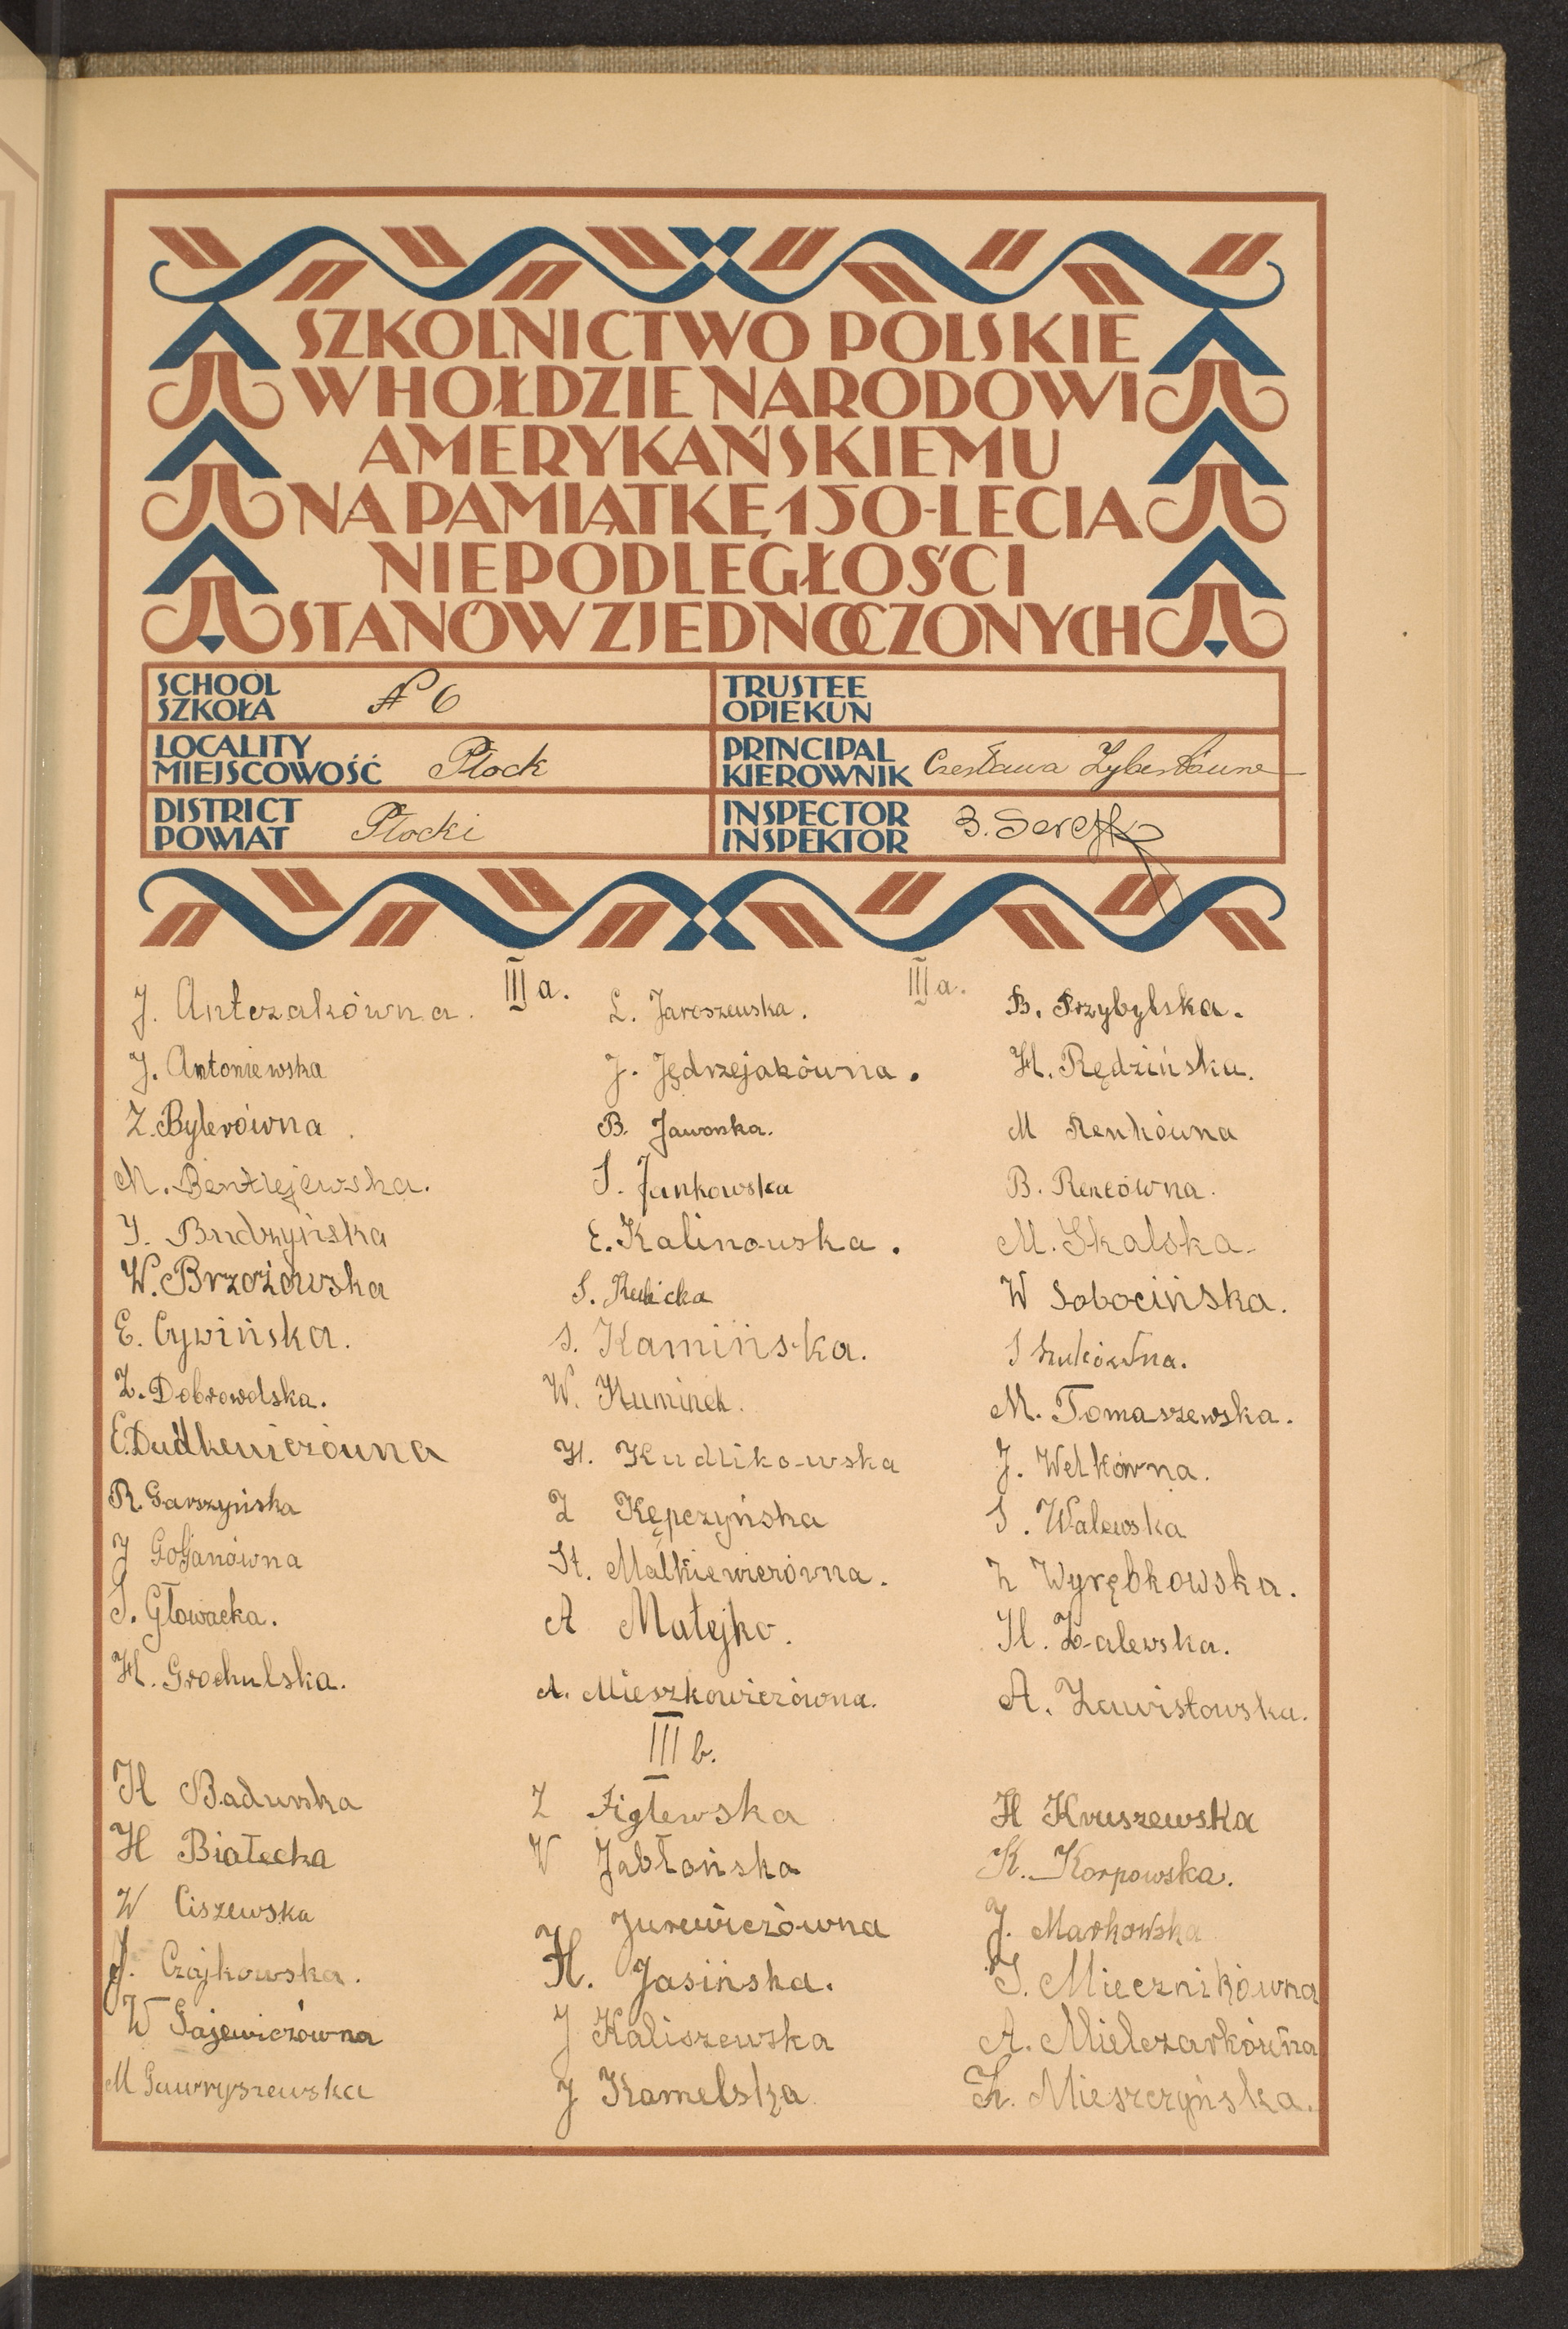 SZKOLNICTWO POLSKIE
W HOŁDZIE NARODOWI
AMERYKAŃSKIEMU
NA PAMIĄTKĘ 150-LECIA
NIEPODLEGŁOŚCI
STANÓW ZJEDNOCZONYCH
SCHOOL
SZKOŁA
№ 6
TRUSTEE
OPIEKUN
LOCALITY
MIEJSCOWOŚĆ
Płock
PRINCIPAL
KIEROWNIK
Czesława
DISTRICT
POWIAT
Płocki
INSPECTOR
INSPEKTOR
B.
III a.
III a.
J. Antczakówna.
J. Antoniewska
Z. Bylerówna.
M.
J. Budzyńska
W. Brzozowska
E. Cywińska.
Z. Dobrowolska.
E. Dudkewiczówna
R. Garszyńska
J Gołjanówna
S. Głowacka.
H. Grochulska.
L. Jaroszewska.
J. Jędrzejakówna.
B. Jaworska.
S. Jankowska
E. Kalinowska.
S. Kubicka
S. Kamińska.
W. Kuminek.
H. Kudlikowska
Z Kępczyńska
St. Małkiewiczówna.
A Matejko.
A. Mieszkowiczówna.
B. Przybylska.
H. Rędzińska.
M Renkówna
B. Rencówna.
M. Skalska
W Sobocińska.
S
M. Tomaszewska.
J. Welkówna.
S. Walewska
Z Wyrębkowska.
H. Zalewska.
A. Zawistowska.
III b.
H Badurska
H Białecka
W Ciszewska
J. Czajkowska.
W Gajewiczówna
M Gawryszewska
Z Figlewska
W Jabłońska
Jurewiczówna
H. Jasińska.
J Kaliszewska
J Kamelska
H Kruszewska
K. Korpowska.
J. Markowska
J. Miecznikówna
A. Mielczarkówna
Z. Mieszczyńska.